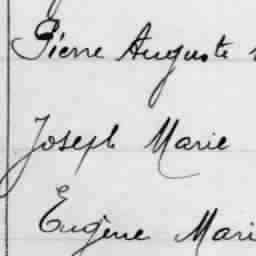 Pierre Auguste
Joseph Marie
Eugène Mari